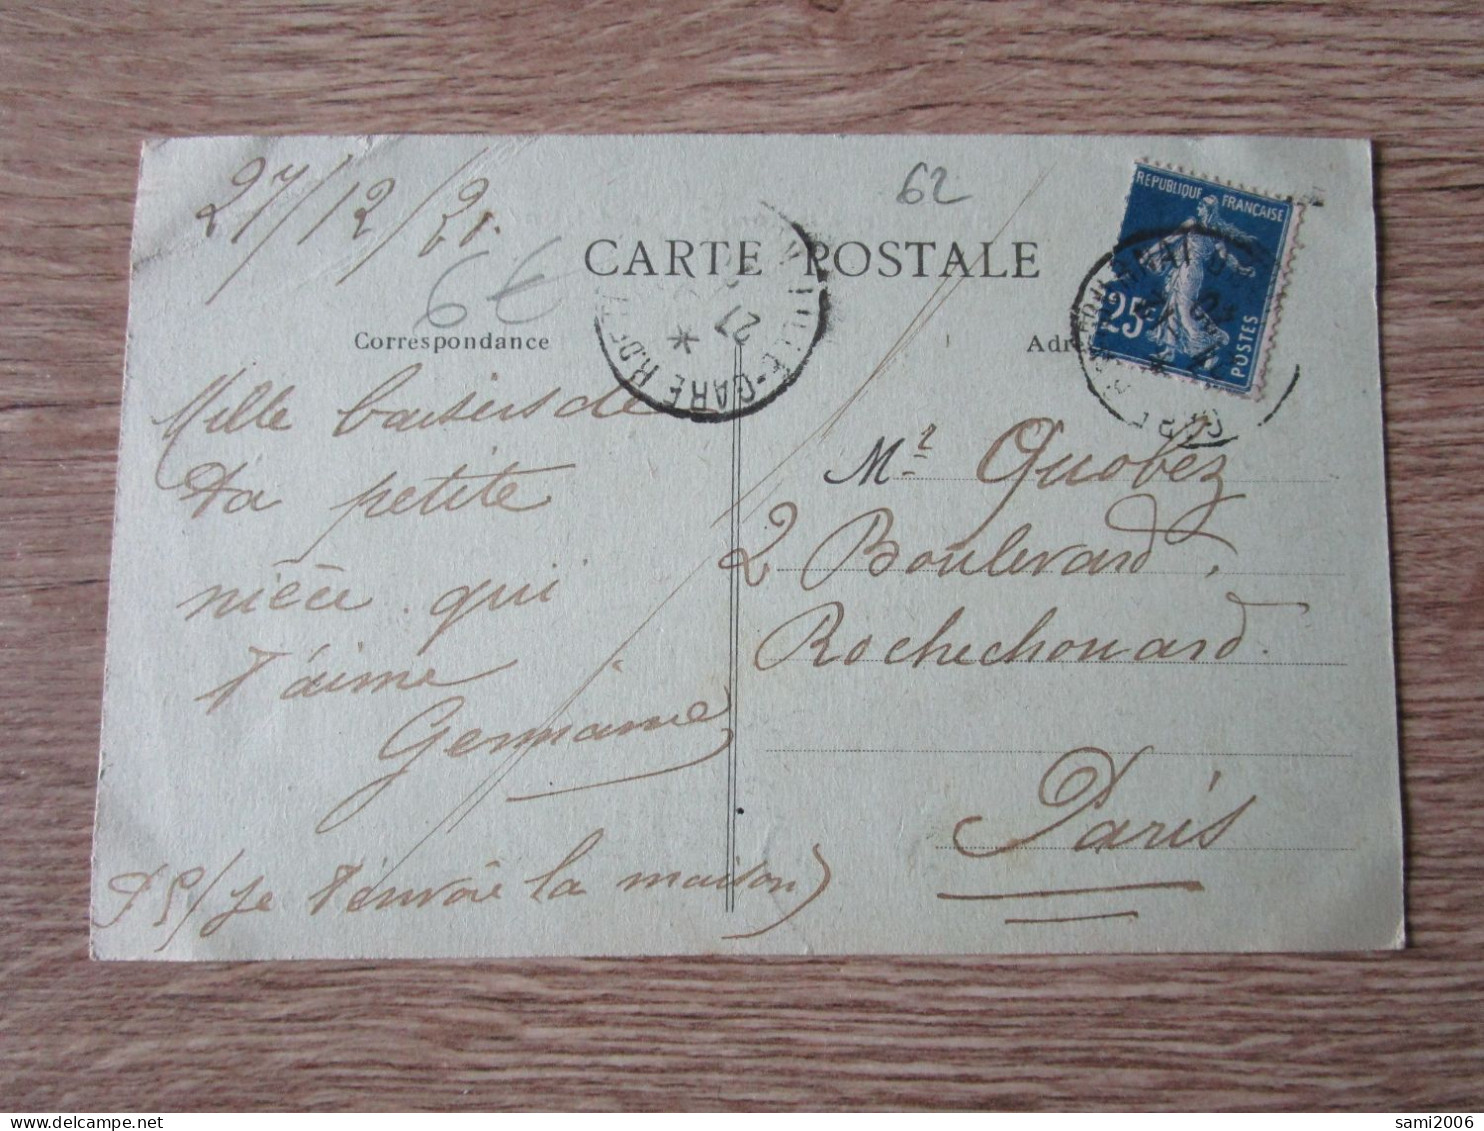 27/12/21.
62
6€
CARTE POSTALE
Correspondance
Adr
RÉPUBLIQUE FRANÇAISE
25c
POSTES
27
GARE
Mille baisers de
ta petite
nièce qui
t'aime
Germaine
PS/ Je t'envoie la maison
Mr Quobez
2 Boulevard
Rochechouard.
Paris
sami2006